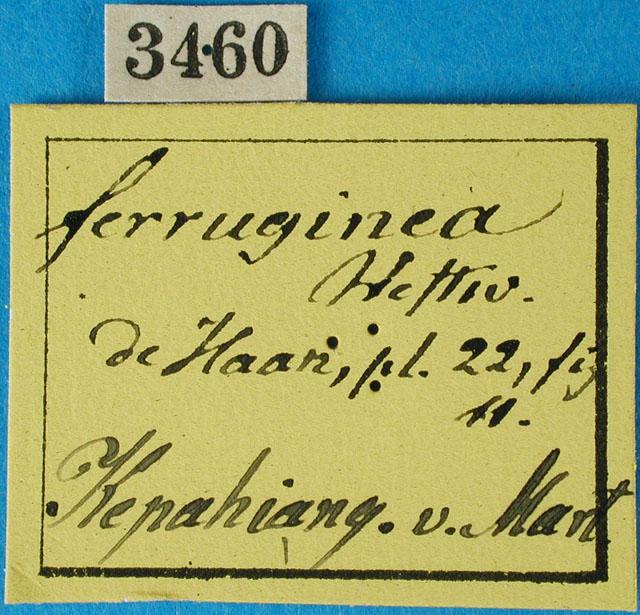 3460
ferruginea
Westw.
de Haan, pl. 22, fig
11.
Kepahiang. v. Mart